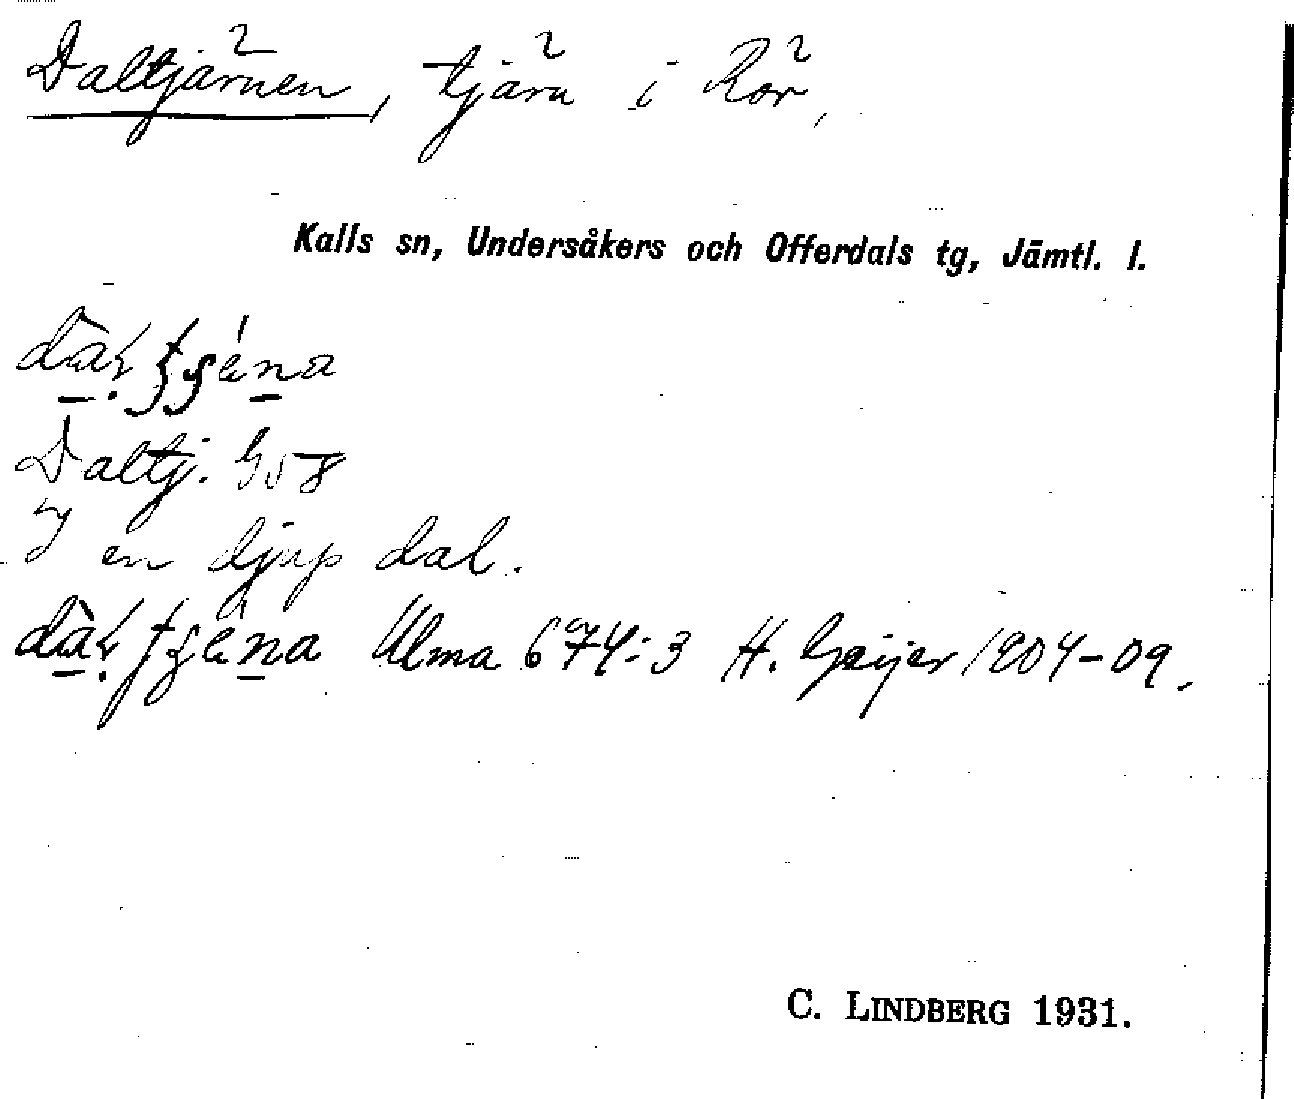 Daltjärnen, tjärn i Rör,
Kalls sn, Undersåkers och Offerdals tg, Jämtl. l.
Daltj. G58
I en djup dal.
Ulma 674:3 H. Geijer 1904-09.
C. LINDBERG 1931.